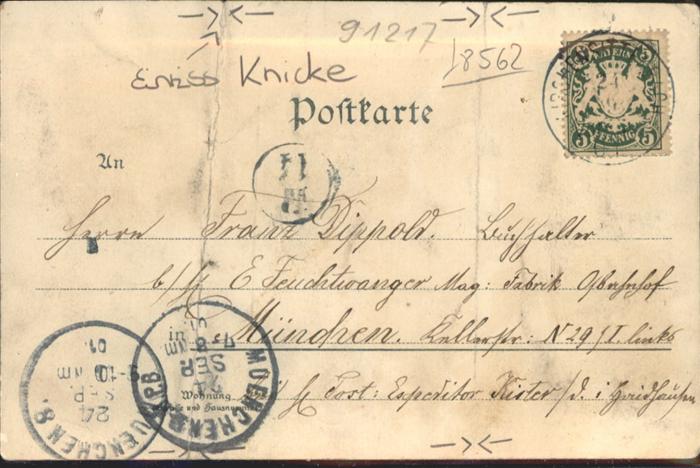 91217
18562
Einriss Knicke
BAYERN
5 5
PFENNIG
Postkarte
An
11
Herrn Franz Dippold. Buchhalter
b/H E Feuchtwanger Mag: Fabrik Ostbahnhof
München. Kellerstr: N 29/I. links
Post: Expeditor Kister / d. i. Haidhausen
Wohnung
(Straße und Hausnummer)
MUENCHEN 8
24
SEP
01
MUENCHEN 8
24
SEP
01